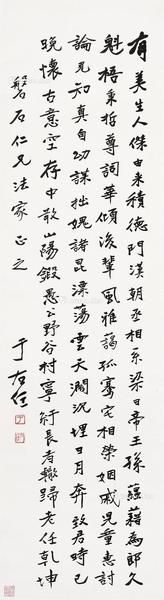 有美生人傑由來積德門漢朝丞相系梁日帝王孫蘊藉為郎久
魁梧秉哲尊詞華傾後輩風雅藹孤騫宅相榮姻戚兒童惠討
論見知真自幼謀拙媿諸昆漂蕩雲天濶沉埋日月奔致君時已
晚懷古意空存中散山陽鍛愚公野谷村寧紆長者轍歸老任乾坤
磐石仁兄法家正之
于右任